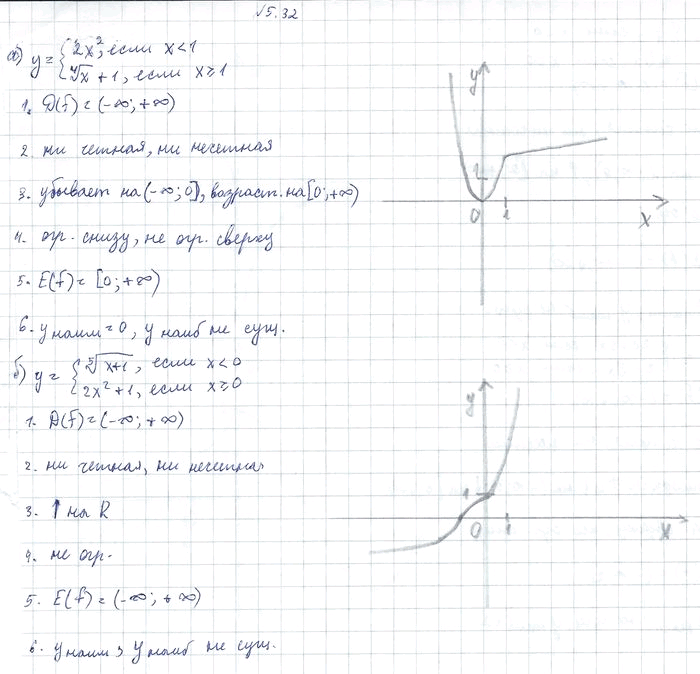 √5.32
а) y = { 2x², если x < 1
⁴√x + 1, если x ≥ 1
1. D(f) = (-∞; +∞)
2. ни четная, ни нечетная
3. убывает на (-∞; 0], возраст. на [0; +∞)
4. огр. снизу, не огр. сверху
5. E(f) = [0; +∞)
6. y наим = 0, y наиб не сущ.
y
1
0
1
x
б) y = { ⁵√x+1, если x < 0
2x² + 1, если x ≥ 0
1. D(f) = (-∞; +∞)
2. ни четная, ни нечетна
3. ↑ на R
4. не огр.
5. E(f) = (-∞; +∞)
6. y наим, y наиб не сущ.
y
1
0
1
x